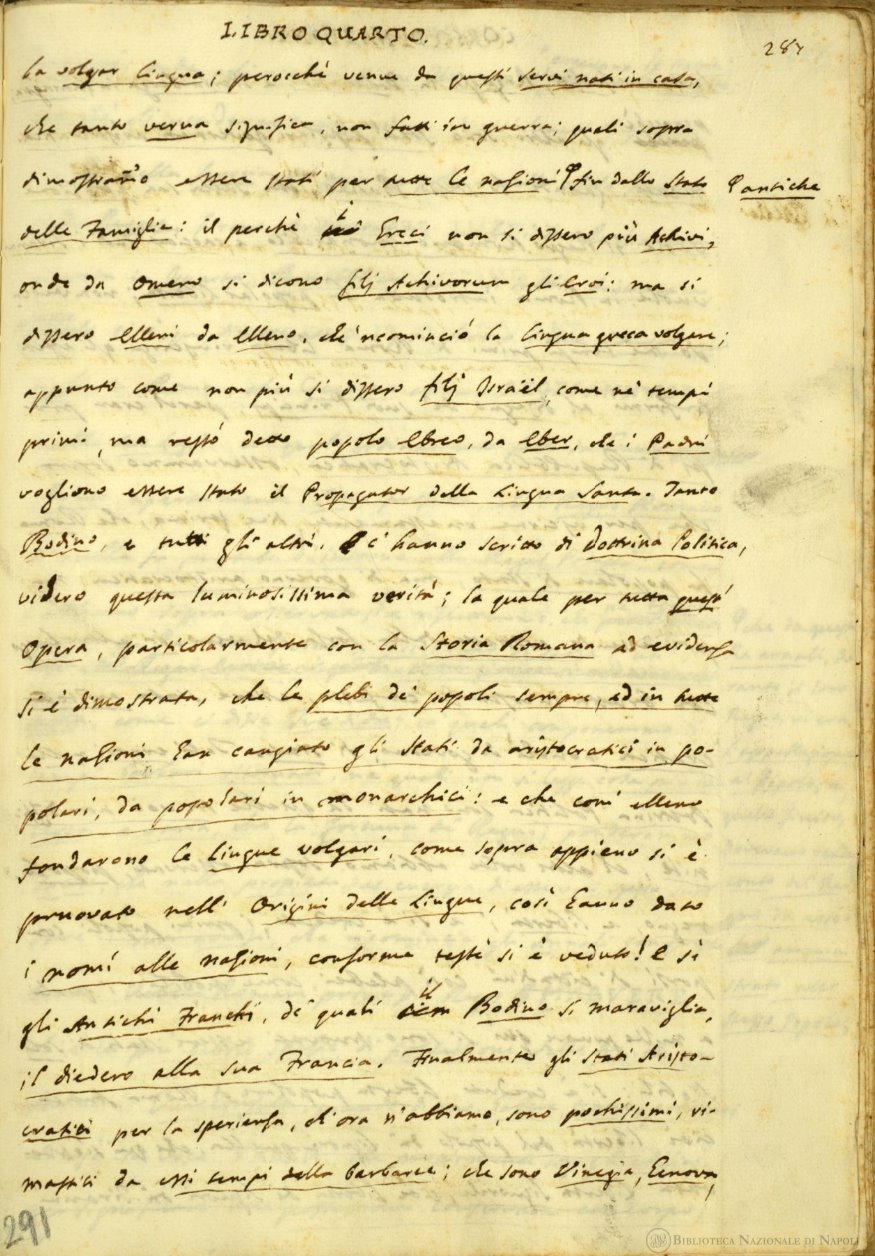 LIBRO QUARTO.
287
la volgar lingua; perocchè venne da questi servi nati in casa,
che tanto verna significa, non fatti in guerra; quali sopra
dimostrammo essere stati per tutte le nazioni fin dallo Stato
antiche
delle Famiglie: il perchè i Greci non si dissero più Achivi,
onde da Omero si dicono filj Achivorum gli Eroi: ma si
dissero Elleni da Elleno, che 'ncominciò la lingua greca volgare;
appunto come non più si dissero filj Israël, come ne' tempi
primi, ma restò detto popolo Ebreo, da Eber, che i Padri
vogliono essere stato il Propagator della Lingua Santa. Tanto
Bodino, e tutti gli altri, c' hanno scritto di Dottrina Politica,
videro questa luminosissima verità; la quale per tutta quest'
Opera, particolarmente con la Storia Romana ad evidenza
si è dimostrata, che le plebi de' popoli sempre, ed in tutte
le nazioni han cangiato gli Stati da aristocratici in po-
polari, da popolari in monarchici: e che com' elleno
fondarono le lingue volgari, come sopra appieno si è
pruovato nell' Origini delle Lingue, così hanno dato
i nomi alle nazioni, conforme testè si è veduto! E sì
gli Antichi Franchi, de' quali il Bodino si maraviglia,
il diedero alla sua Francia. Finalmente gli Stati Aristo-
cratici per la sperienza, ch' ora n' abbiamo, sono pochissimi, ri-
mastici da essi tempi della barbarie; che sono Vinegia, Genova,
291
BIBLIOTECA NAZIONALE DI NAPOLI